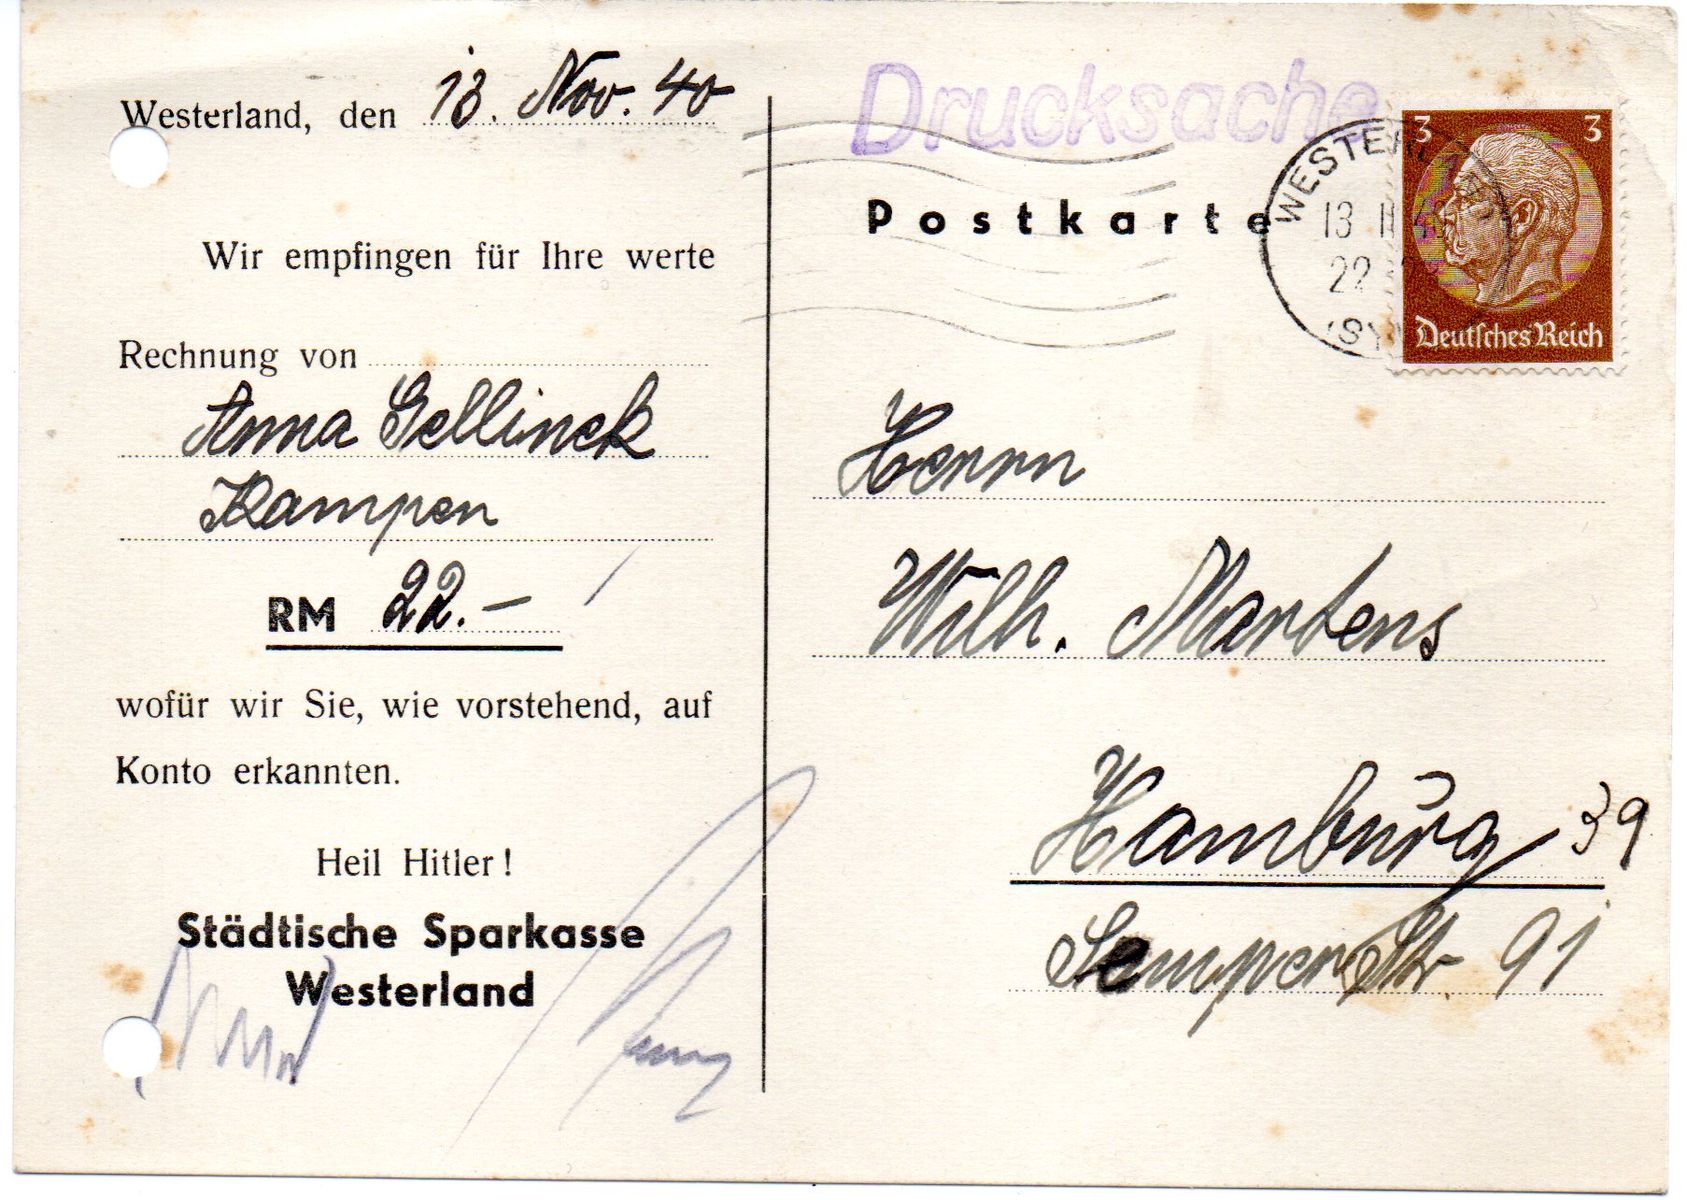 Westerland, den 13. Nov. 40
Wir empfingen für Ihre werte
Rechnung von
Anna Gellinek
Kampen
RM 22.-
wofür wir Sie, wie vorstehend, auf
Konto erkannten.
Heil Hitler!
Städtische Sparkasse
Westerland
Drucksache
Postkarte
WESTERLAND
13 11 40
22
(SY
3 3
Deutsches Reich
Herrn
Wilh. Martens
Hamburg 39
Semperstr. 91